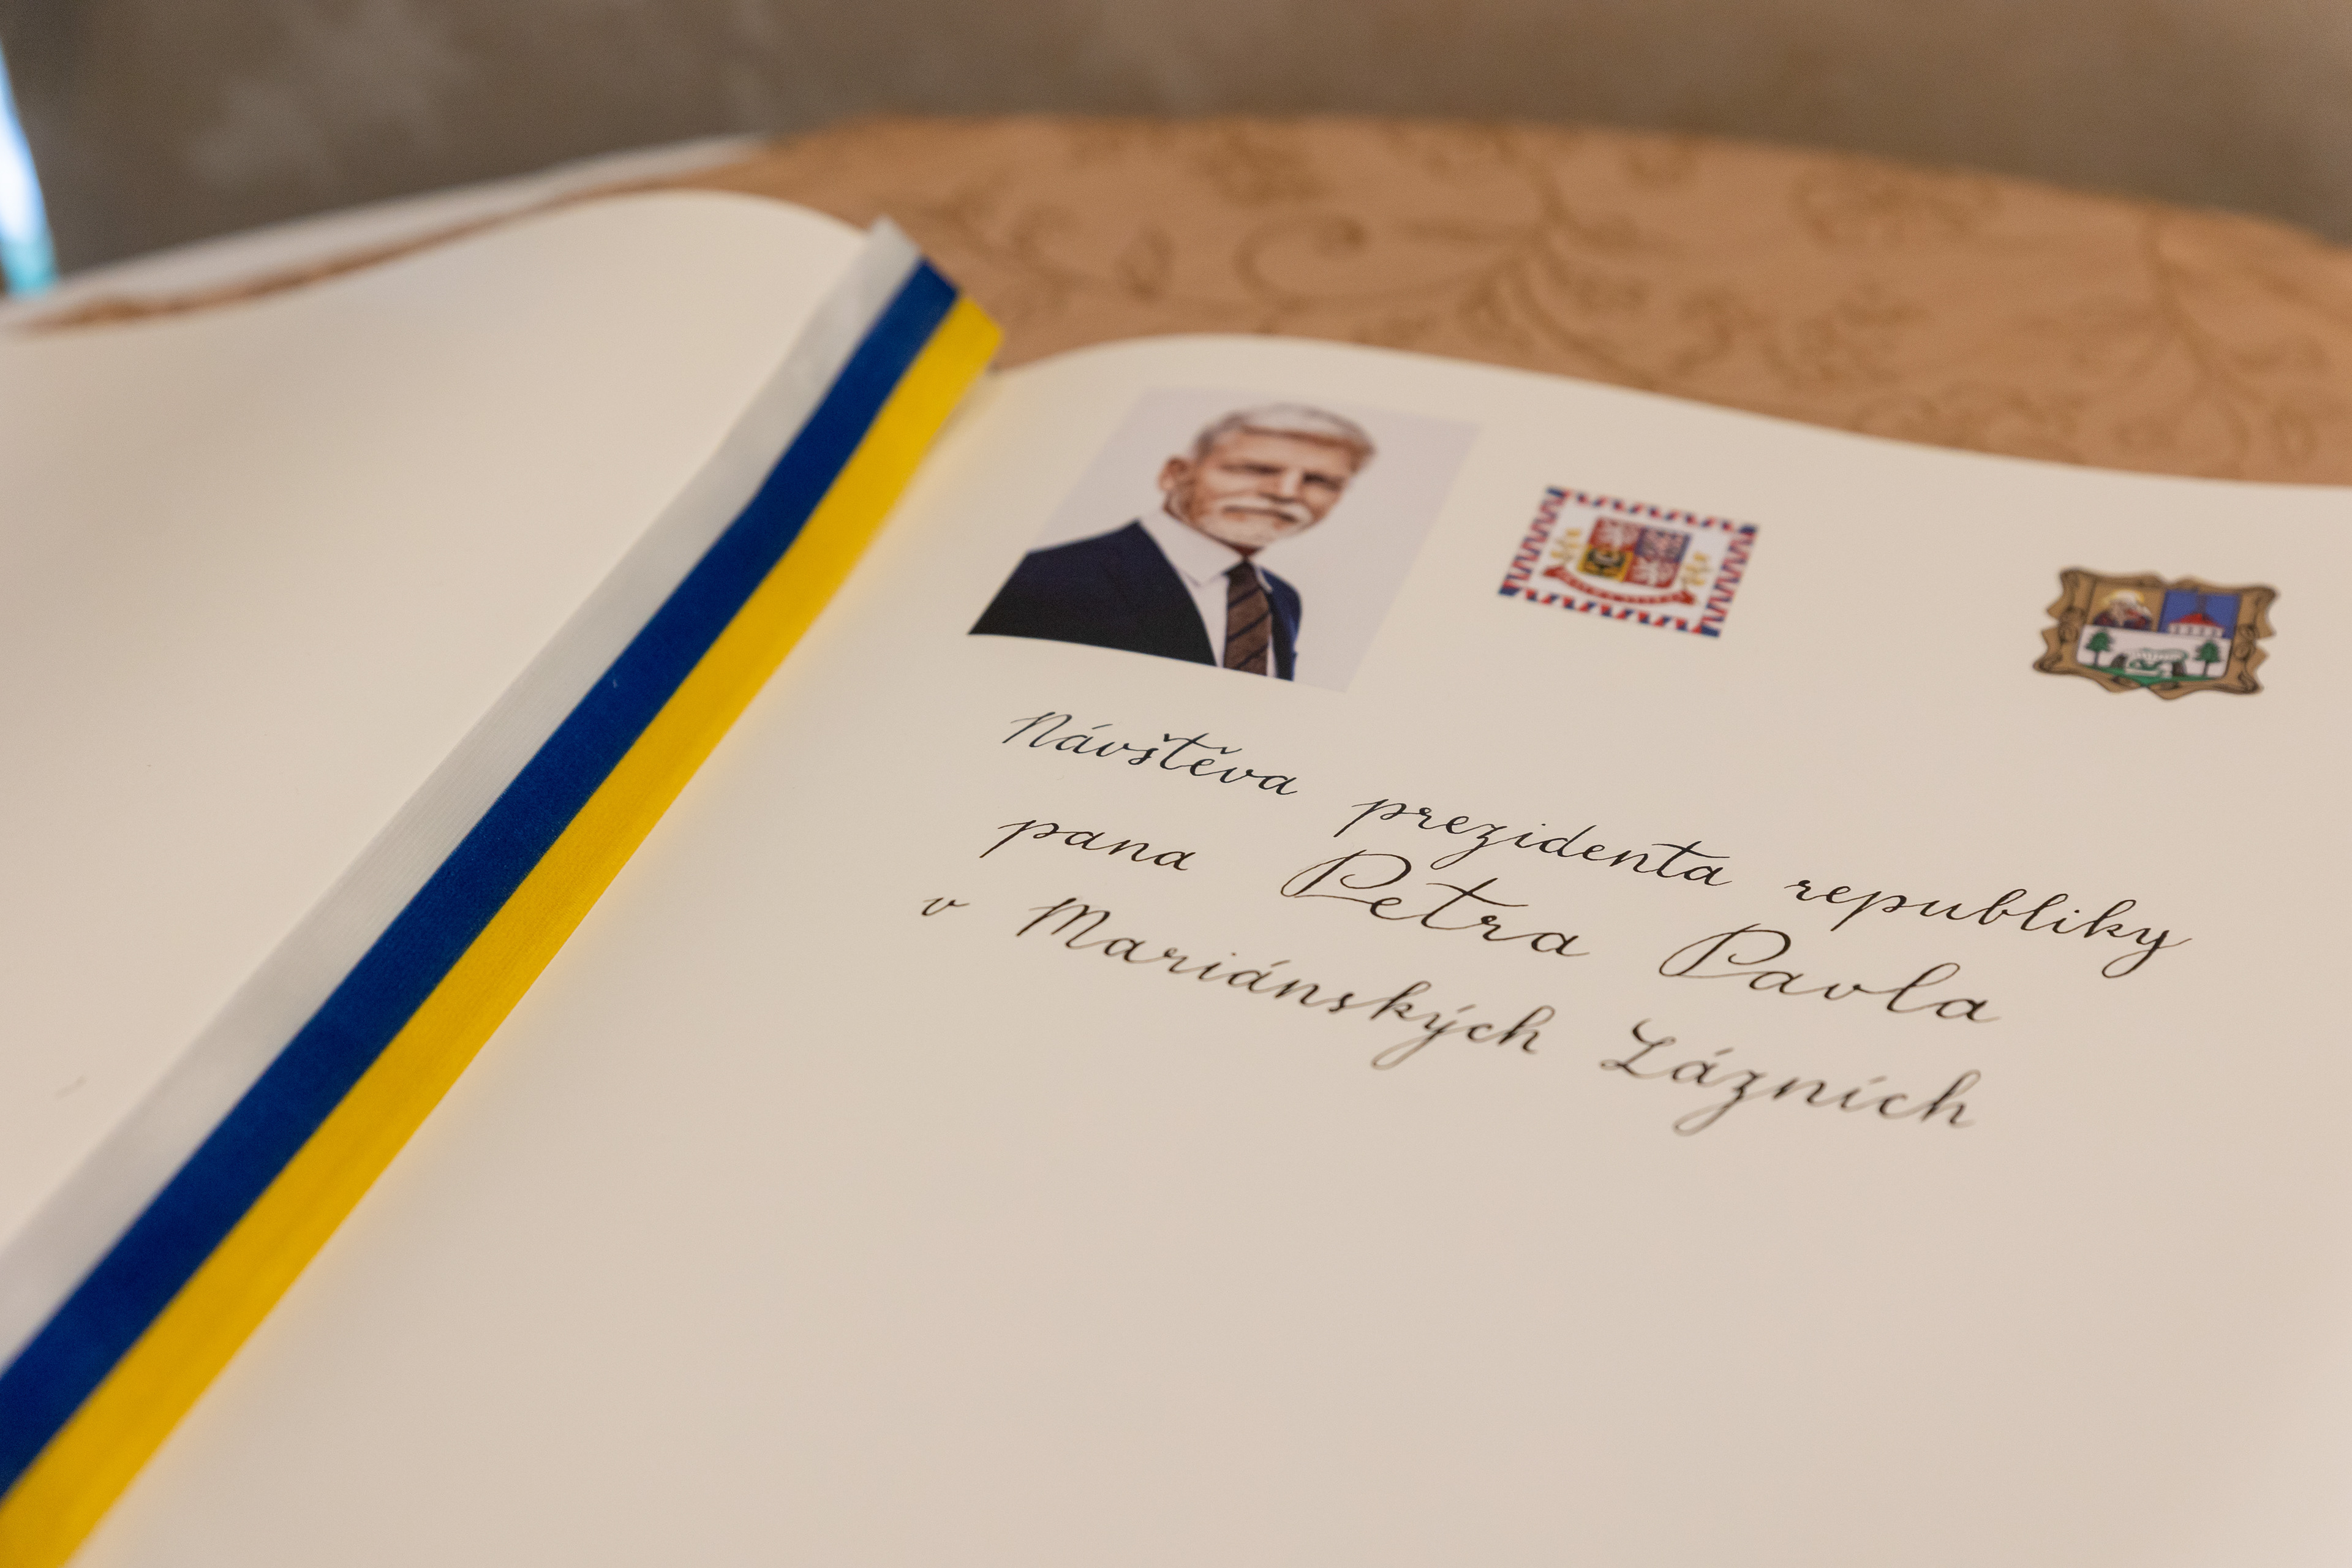 Návštěva prezidenta republiky
pana Petra Pavla
v Mariánských Lázních